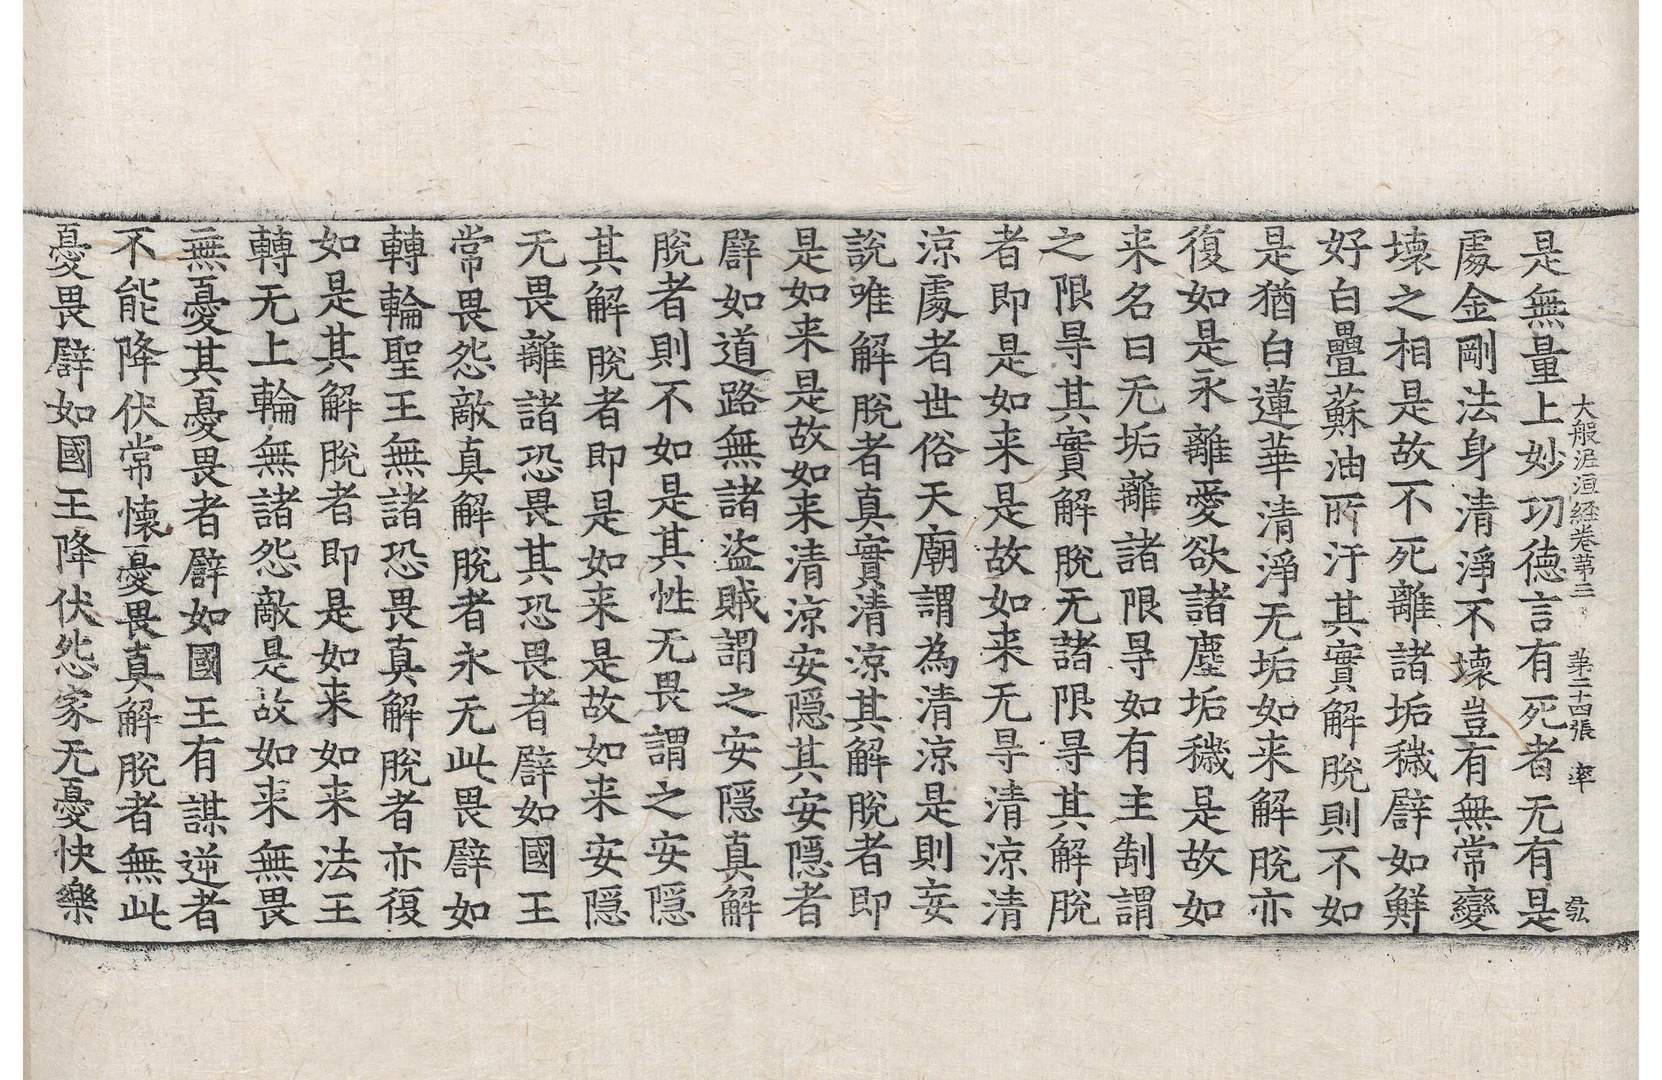 大般泥洹経卷第三　第二十四張　率
是無量上妙功德言有死者无有是
處金剛法身清淨不壞豈有無常變
壞之相是故不死離諸垢穢譬如鮮
好白疊蘇油所汙其實解脫則不如
是猶白蓮華清淨无垢如来解脫亦
復如是永離愛欲諸塵垢穢是故如
来名曰无垢離諸限㝵如有主制謂
之限㝵其實解脫无諸限㝵其解脫
者即是如来是故如来无㝵清涼清
涼處者世俗天廟謂為清涼是則妄
說唯解脫者真實清涼其解脫者即
是如来是故如来清涼安隱其安隱者
譬如道路無諸盜賊謂之安隱真解
脫者則不如是其性无畏謂之安隱
其解脫者即是如来是故如来安隱
无畏離諸恐畏其恐畏者譬如國王
常畏怨敵真解脫者永无此畏譬如
轉輪聖王無諸恐畏真解脫者亦復
如是其解脫者即是如来如来法王
轉无上輪無諸怨敵是故如来無畏
無憂其憂畏者譬如國王有謀逆者
不能降伏常懷憂畏真解脫者無此
憂畏譬如國王降伏怨家无憂快樂